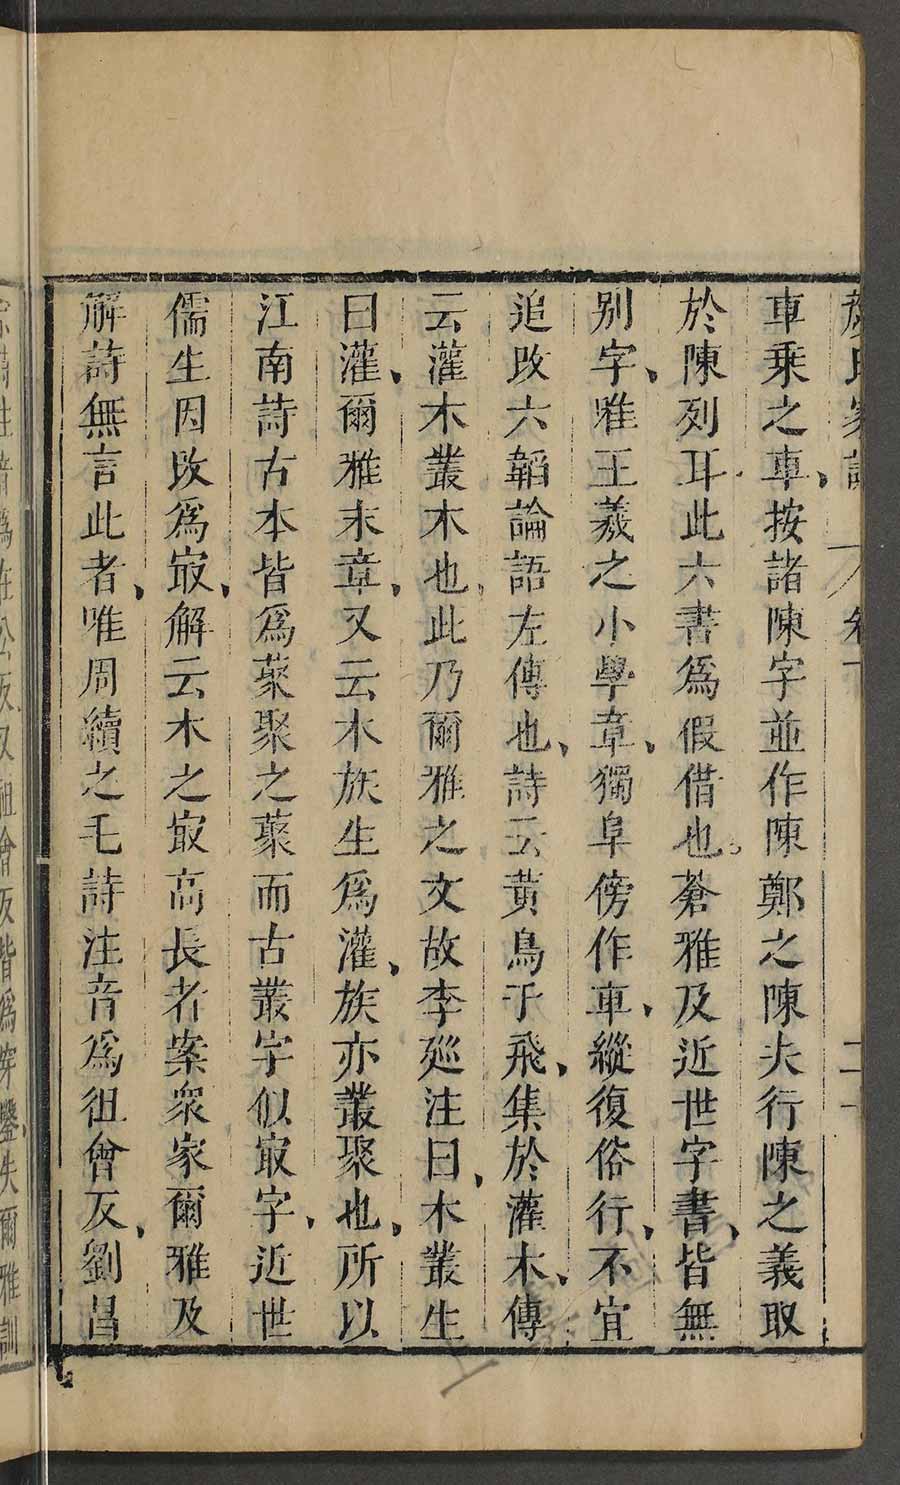 車乗之車按諸陳字並作陳鄭之陳夫行陳之義取
於陳列耳此六書爲假借也蒼雅及近世字書皆無
别字唯王羲之小學章獨阜傍作車縱復俗行不宜
追改六韜論語左傳也詩云黄鳥于飛集於灌木傳
云灌木叢木也此乃爾雅之文故李廵注曰木叢生
曰灌爾雅末章又云木族生爲灌族亦叢聚也所以
江南詩古本皆爲藂聚之藂而古叢字似冣字近世
儒生因改爲冣解云木之冣高長者案衆家爾雅及
解詩無言此者唯周續之毛詩注音爲徂會反劉昌
爲徂會反皆爲穿鑿失爾雅訓